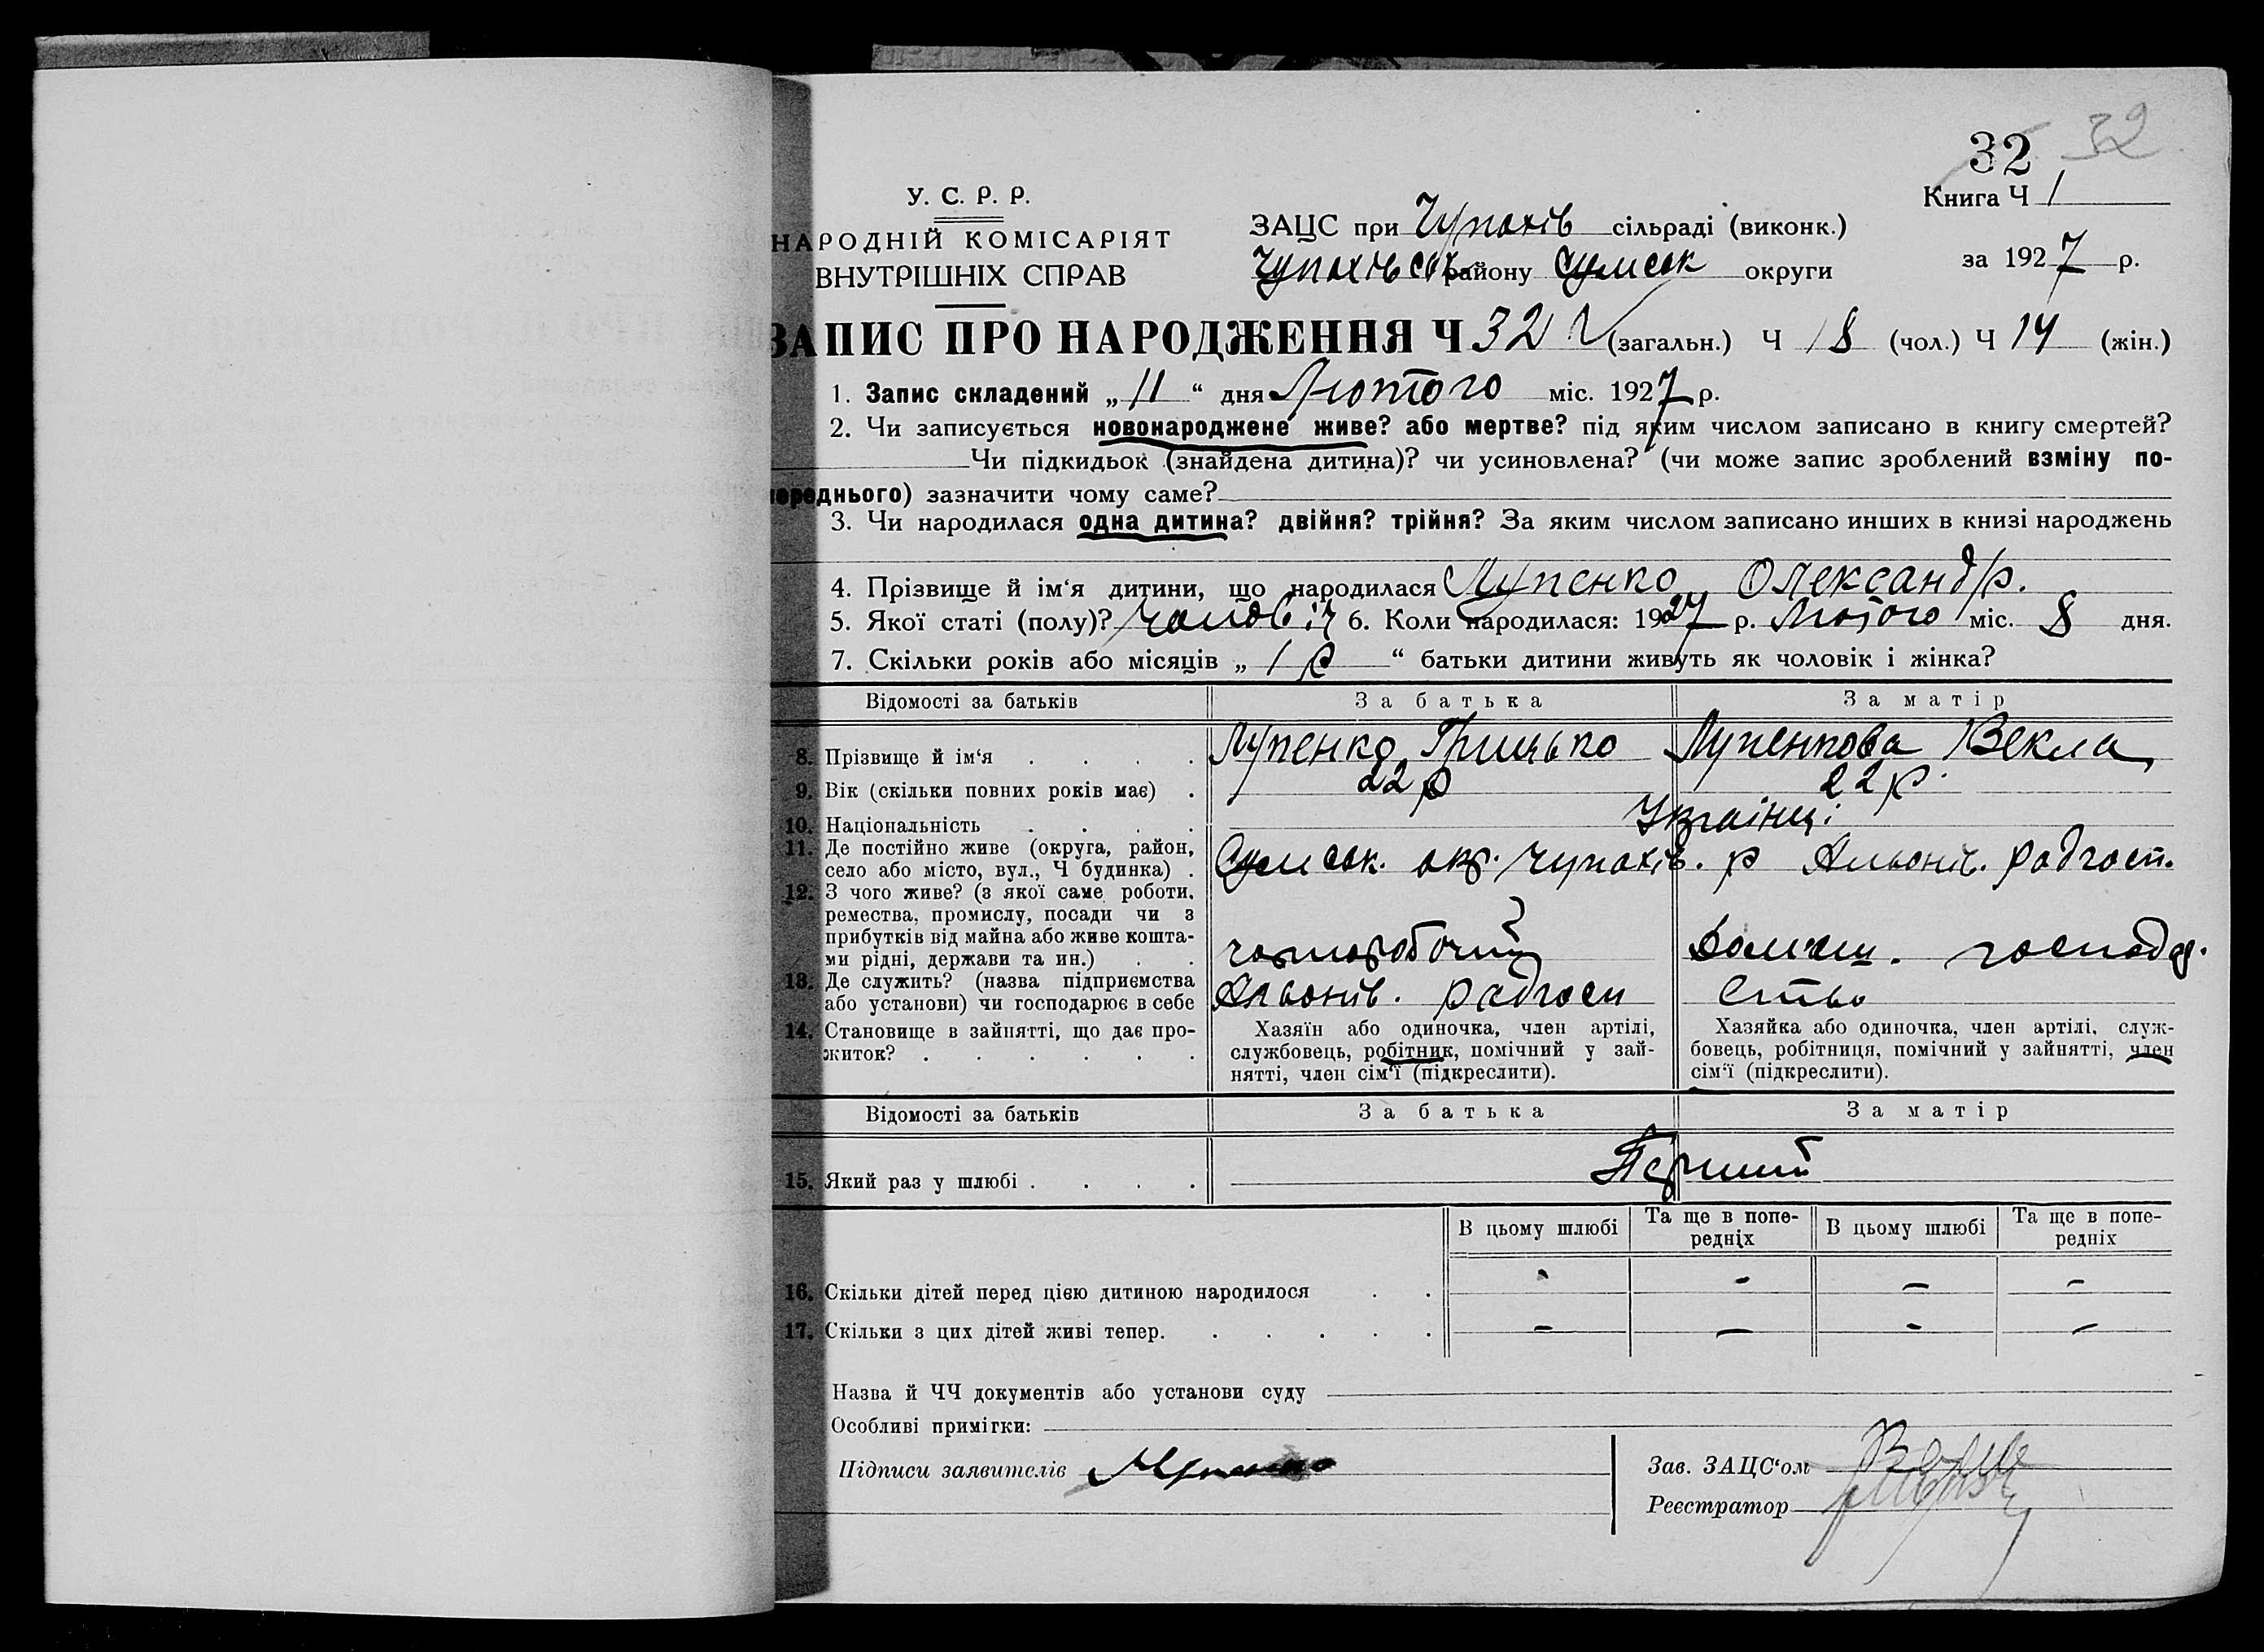 32 32
У. С. Р. Р.
Книга Ч 1
НАРОДНІЙ КОМІСАРІЯТ
ЗАЦС при Чупахів сільраді (виконк.)
ВНУТРІШНІХ СПРАВ
Чупахівськ району Сумськ округи
за 1927 р.
ЗАПИС ПРО НАРОДЖЕННЯ Ч 32 (загальн.) Ч 18 (чол.) Ч 14 (жін.)
1. Запис складений „11“ дня Лютого міс. 1927 р.
2. Чи записується новонароджене живе? або мертве? під яким числом записано в книгу смертей?
Чи підкидьок (знайдена дитина)? чи усиновлена? (чи може запис зроблений взміну по-
переднього) зазначити чому саме?
3. Чи народилася одна дитина? двійня? трійня? За яким числом записано инших в книзі народжень
4. Прізвище й ім‘я дитини, що народилася Лупенко Олександр.
5. Якої статі (полу)? чоловіч 6. Коли народилася: 1927 р. Лютого міс. 8 дня.
7. Скільки років або місяців „1 р“ батьки дитини живуть як чоловік і жінка?
Відомості за батьків За батька За матір
8. Прізвище й ім‘я . . . . Лупенко Грицько Лупенкова Векла
9. Вік (скільки повних років має) . 22 р 22 р.
10. Національність . . . . Українці
11. Де постійно живе (округа, район,
село або місто, вул., Ч будинка) . Сумськ. окр. Чупахів. р радгосп.
12. З чого живе? (з якої саме роботи,
ремества, промислу, посади чи з
прибутків від майна або живе кошта-
ми рідні, держави та ин.) . . чорноробочий Домаш. господар.
13. Де служить? (назва підприємства
або установи) чи господарює в себе радгосп ство
14. Становище в зайнятті, що дає про-
житок? . . . . . .
Хазяїн або одиночка, член артілі,
службовець, робітник, помічний у зай-
нятті, член сім‘ї (підкреслити).
Хазяйка або одиночка, член артілі, служ-
бовець, робітниця, помічний у зайнятті, член
сім‘ї (підкреслити).
Відомості за батьків За батька За матір
15. Який раз у шлюбі . . . . Перший
В цьому шлюбі Та ще в попе-
редніх В цьому шлюбі Та ще в попе-
редніх
16. Скільки дітей перед цією дитиною народилося . . - - - -
17. Скільки з цих дітей живі тепер. . . . . . - - - -
Назва й ЧЧ документів або установи суду
Особливі примітки:
Підписи заявителів Лупенко
Зав. ЗАЦС‘ом
Реєстратор